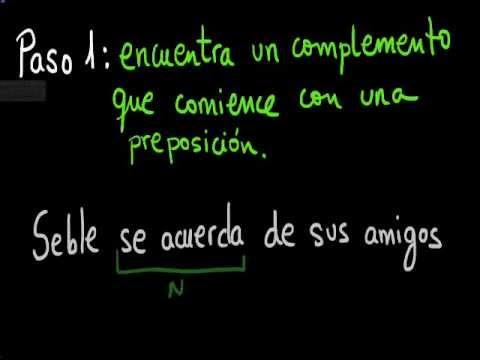 Paso 1: encuentra un complemento
que comience con una
preposición.
Seble se acuerda de sus amigos
N